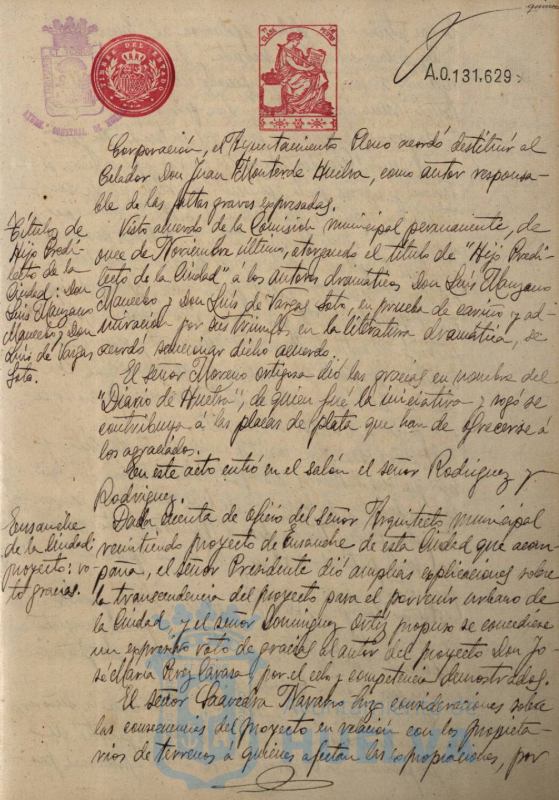 A.0.131,629
TIMBRE DEL ESTADO
Corporación, el Ayuntamiento Pleno acordó destituir al
Celador Don Juan Monterde Huelva, como autor responsa-
ble de las faltas graves expresadas.
Título de
Hijo Predi-
lecto de la
Ciudad: Don
Luis Manzano
Mancebo y Don
Luis de Vargas
Soto.
Visto acuerdo de la Comisión municipal permanente, de
once de Noviembre último, otorgando el título de "Hijo Predi-
lecto de la Ciudad", á los autores dramáticos Don Luis Manzano
Mancebo y Don Luis de Vargas Soto, en prueba de cariño y ad-
miración por sus triunfos en la literatura dramática, se
acordó sancionar dicho acuerdo.
El señor Moreno Ortigosa dió las gracias en nombre del
"Diario de Huelva", de quien fué la iniciativa y rogó se
contribuya á las placas de plata que han de ofrecerse á
los agraciados.
En este acto entró en el salón el señor Rodríguez y
Rodríguez.
Ensanche
de la Ciudad:
proyecto: vo-
to gracias.
Dada cuenta de oficio del señor Arquitecto municipal
remitiendo proyecto de ensanche de esta Ciudad que acom-
paña, el señor Presidente dió amplias explicaciones sobre
la transcendencia del proyecto para el porvenir urbano de
la Ciudad y el señor Domínguez Ortiz propuso se concediese
un expresivo voto de gracias al autor del proyecto Don Jo-
sé María Pérez Carasa, por el celo y competencia demostrados.
El señor Saavedra Navarro hizo consideraciones sobre
las consecuencias del proyecto en relación con los propieta-
rios de terrenos á quienes afectan las expropiaciones, por